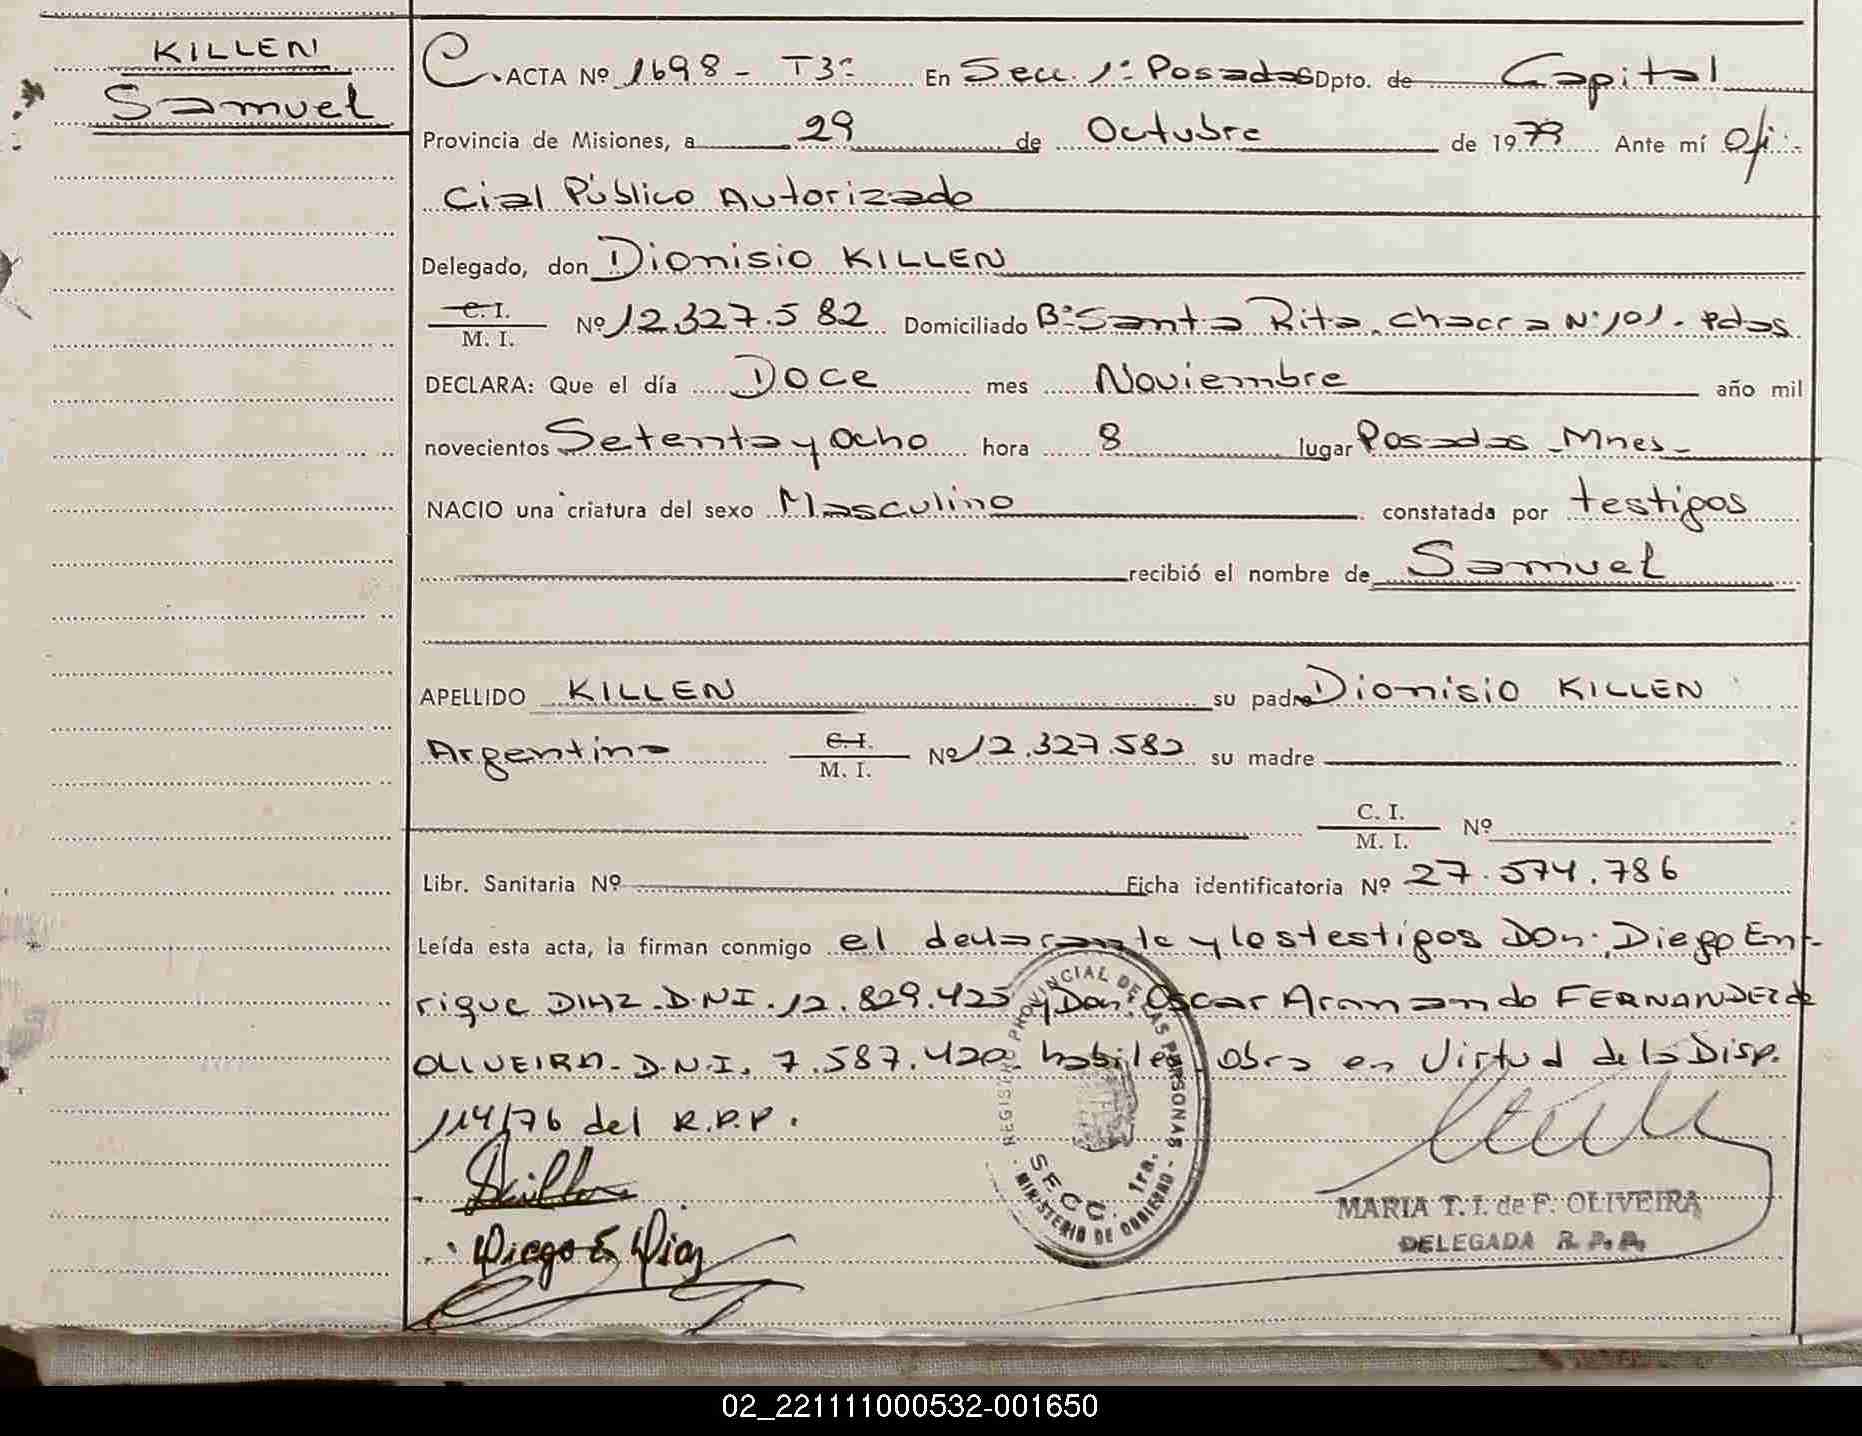 KILLEN
Samuel
C. ACTA Nº 1698 - T3º En Secc. 1º Posadas Dpto. de Capital
Provincia de Misiones, a 29 de Octubre de 1979 Ante mí Ofi-
cial Público Autorizado
Delegado, don Dionisio KILLEN
C. I.
M. I. Nº 12.327.582 Domiciliado Bº Santa Rita, chacra Nº 101. Pdas.
DECLARA: Que el día Doce mes Noviembre año mil
novecientos Setenta y Ocho hora 8 lugar Posadas - Mnes -
NACIO una criatura del sexo Masculino constatada por testigos
recibió el nombre de Samuel
APELLIDO KILLEN su padre Dionisio KILLEN
Argentino C. I.
M. I. Nº 12.327.582 su madre
C. I.
M. I. Nº
Libr. Sanitaria Nº Ficha identificatoria Nº 27.574.786
Leída esta acta, la firman conmigo el declarante y los testigos Don: Diego En-
rique DIAZ - D.N.I. 12.829.425 y Don: Oscar Armando FERNANDEZ de
OLIVEIRA - D.N.I. 7.587.420 habiles, obra en Virtud de la Disp.
114/76 del R.P.P.
REGISTRO PROVINCIAL DE LAS PERSONAS
SECC. 1ra.
MINISTERIO DE GOBIERNO
MARIA T. I. de F. OLIVEIRA
DELEGADA R. P. P.
Diego E Diaz
02_221111000532-001650